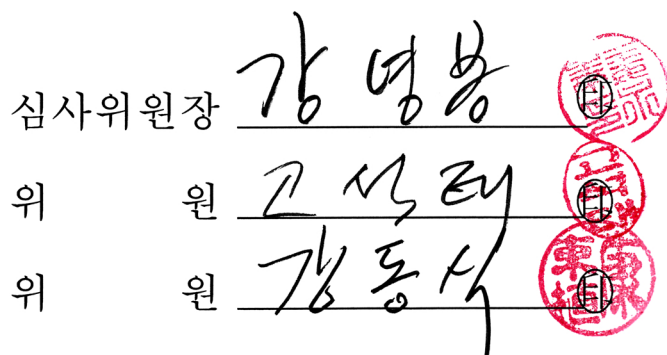 심사위원장 강영봉 ㊞
위 원 고석태 ㊞
위 원 강동식 ㊞